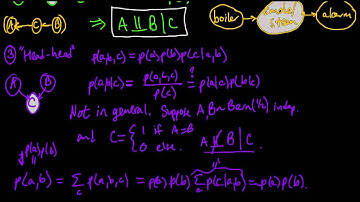 A C B ⇒ A ⫫ B | C boiler smoke/steam alarm
③ "Head-head" p(a,b,c) = p(a) p(b) p(c|a,b)
A B C p(a,b|c) = p(a,b,c) / p(c) ≟ p(a|c) p(b|c)
Not in general. Suppose A,B ~ Bern(½) indep.
and C = { 1 if A=B
0 else. A ⫫̸ B | C
p(a)p(b)
p(a,b) = Σ_c p(a,b,c) = p(a) p(b) Σ_c p(c|a,b) = p(a) p(b).